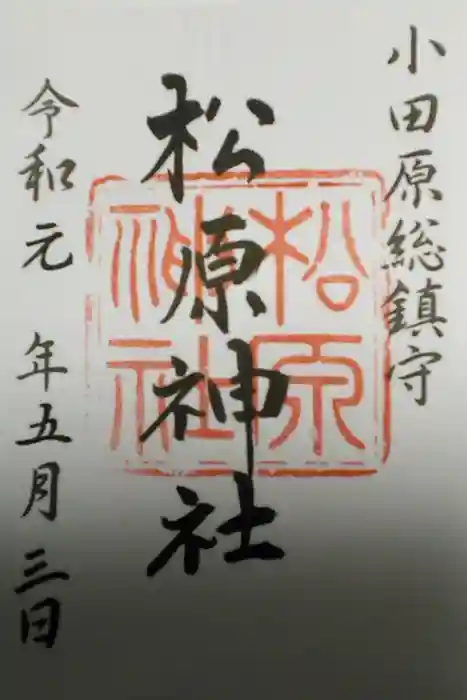 小田原総鎮守
松原神社
松原
神社
令和元年五月三日